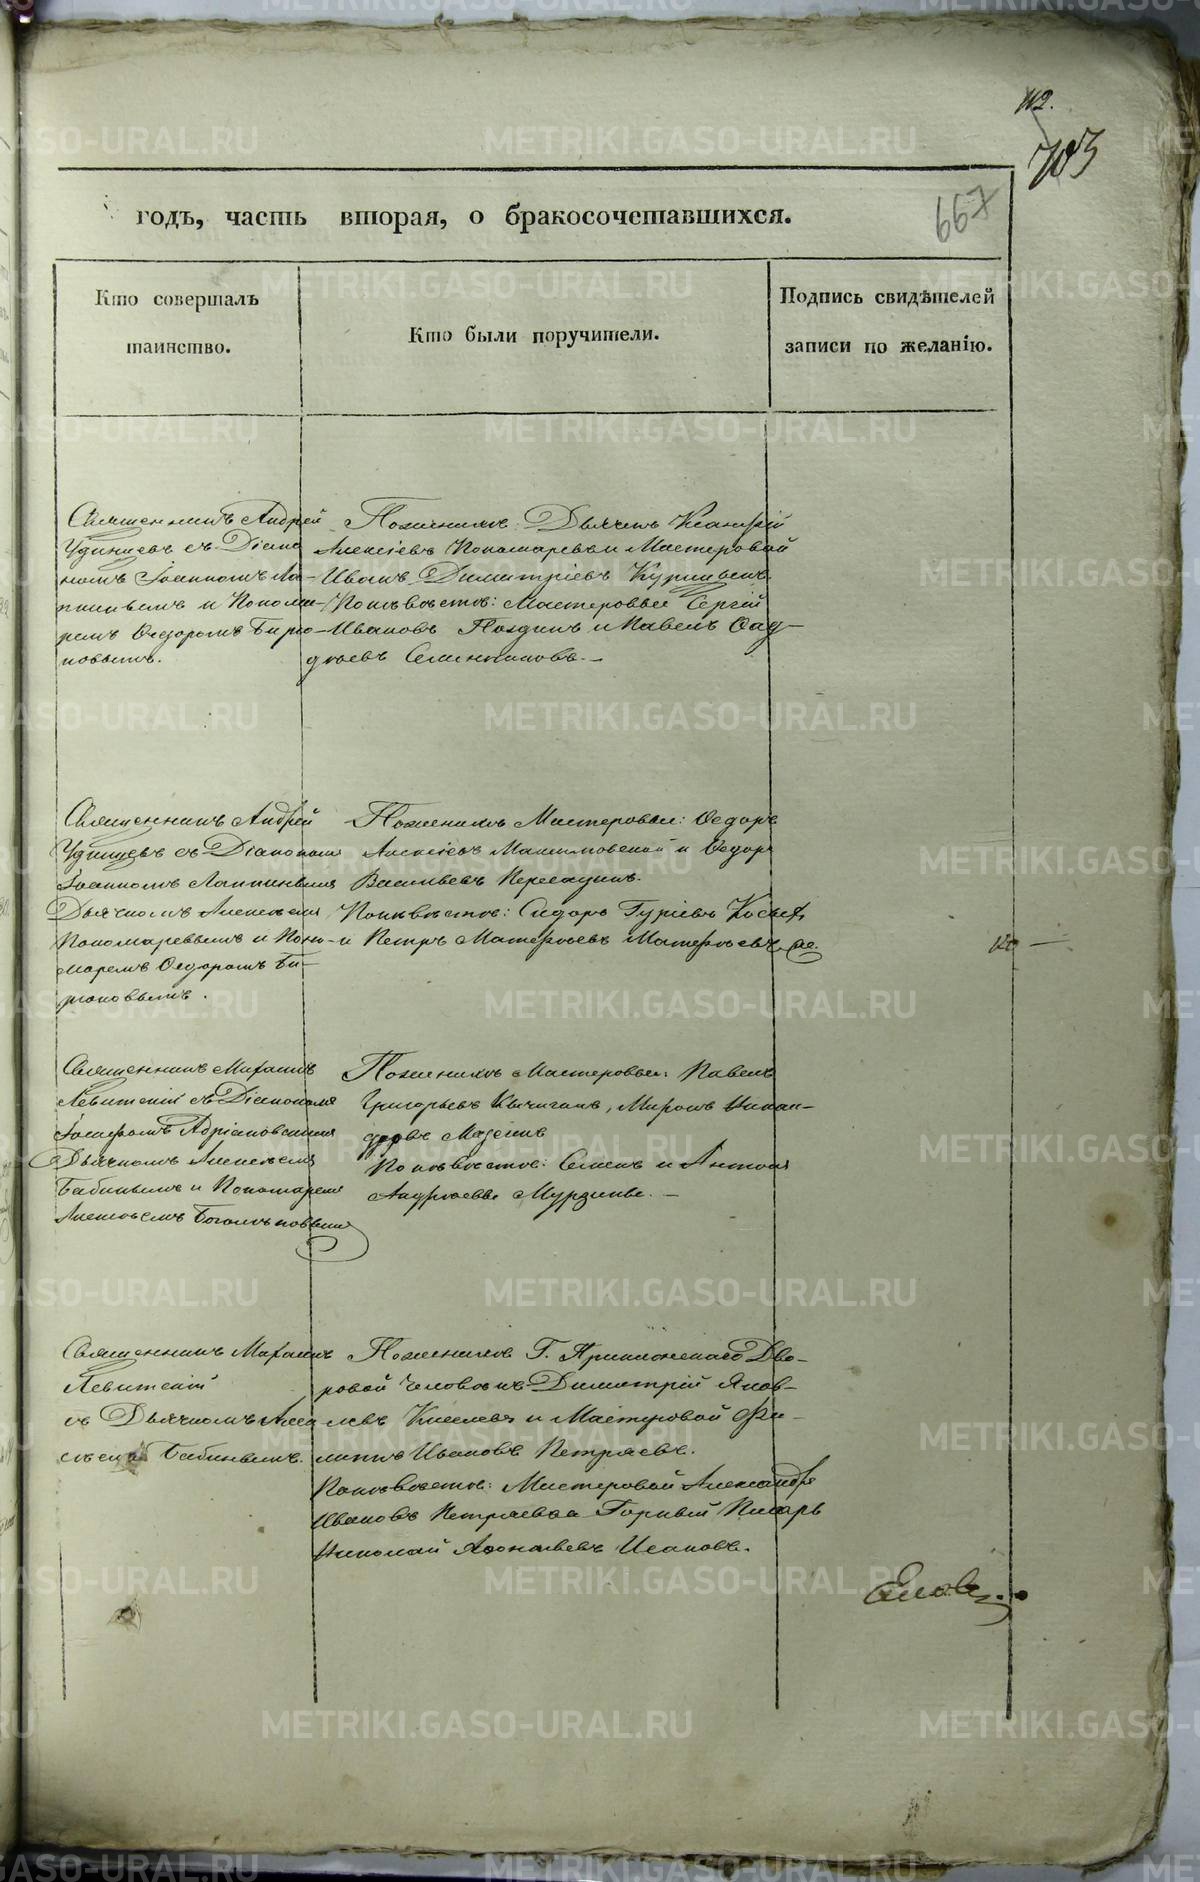 112.
703
667
годъ, часть вторая, о бракосочетавшихся.
Кто совершалъ
таинство.
Кто были поручители.
Подпись свидѣтелей
записи по желанію.
Священникъ Андрей
Удинцевъ съ Діако
номъ Іоанномъ Ла-
пинымъ и Понома-
ремъ Ѳедоромъ Бирю-
ковымъ.
По женихѣ: Дьячекъ
Алексіевъ Пономаревъ и Мастеровой
Иванъ Димитріевъ
По невѣстѣ: Мастеровые Сергій
Ивановъ и Павелъ Ѳад-
дѣевъ
Священникъ Андрей
Удинцевъ съ Діакономъ
Іоанномъ Лапинымъ
Дьячкомъ Алексѣемъ
Пономаревымъ и Поно-
маремъ Ѳедоромъ Би-
рюковымъ.
По женихѣ Мастеровые: Ѳедоръ
Алексіевъ Максимовской и Ѳедоръ
Васильевъ
По невѣстѣ: Сидоръ Гуріевъ
и Петръ Матѳѣевъ Матѳѣевъ же.
Священникъ Михаилъ
Левитскій съ Діакономъ
Іосифомъ Адріановскимъ
Дьячкомъ Алексѣемъ
Бабинымъ и Пономаремъ
Алексѣемъ Боголѣповымъ
По женихѣ Мастеровые: Павелъ
Григорьевъ Кычигинъ, Миронъ Никан-
дровъ Мазеинъ
По невѣстѣ: Семенъ и Антонъ
Андрѣевы Мурзины. —
Священникъ Михаилъ
Левитскій
съ Дьячкомъ Алек
сѣемъ Бабинымъ.
По женихѣ Г. Дво-
ровой человѣкъ Димитрій Яков-
левъ Киселевъ и Мастеровой Фи-
липпъ Ивановъ Петряевъ.
По невѣстѣ: Мастеровой Александръ
Ивановъ Петряевъ и Горный Писарь
Николай Аѳонасьевъ Исаковъ.
METRIKI.GASO-URAL.RU